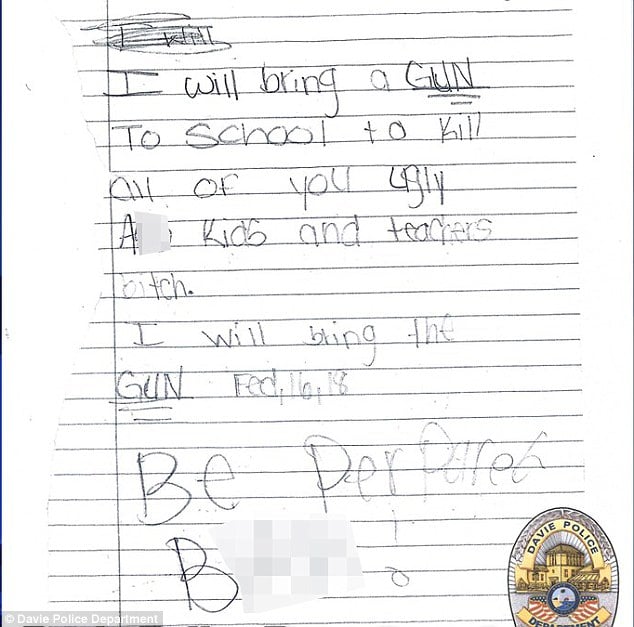 I will
I will bring a GUN
To School to Kill
all of you ugly
A Kids and teachers
bitch.
I will bring the
GUN Fed,16,18
Be PerPared
B
DAVIE POLICE
© Davie Police Department